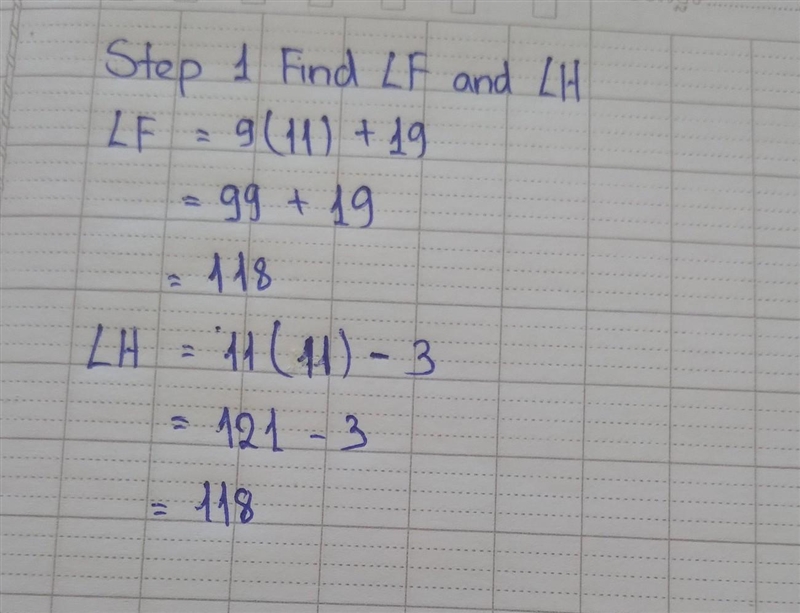 Step 1 Find ∠F and ∠H
∠F = 9(11) + 19
= 99 + 19
= 118
∠H = 11(11) - 3
= 121 - 3
= 118